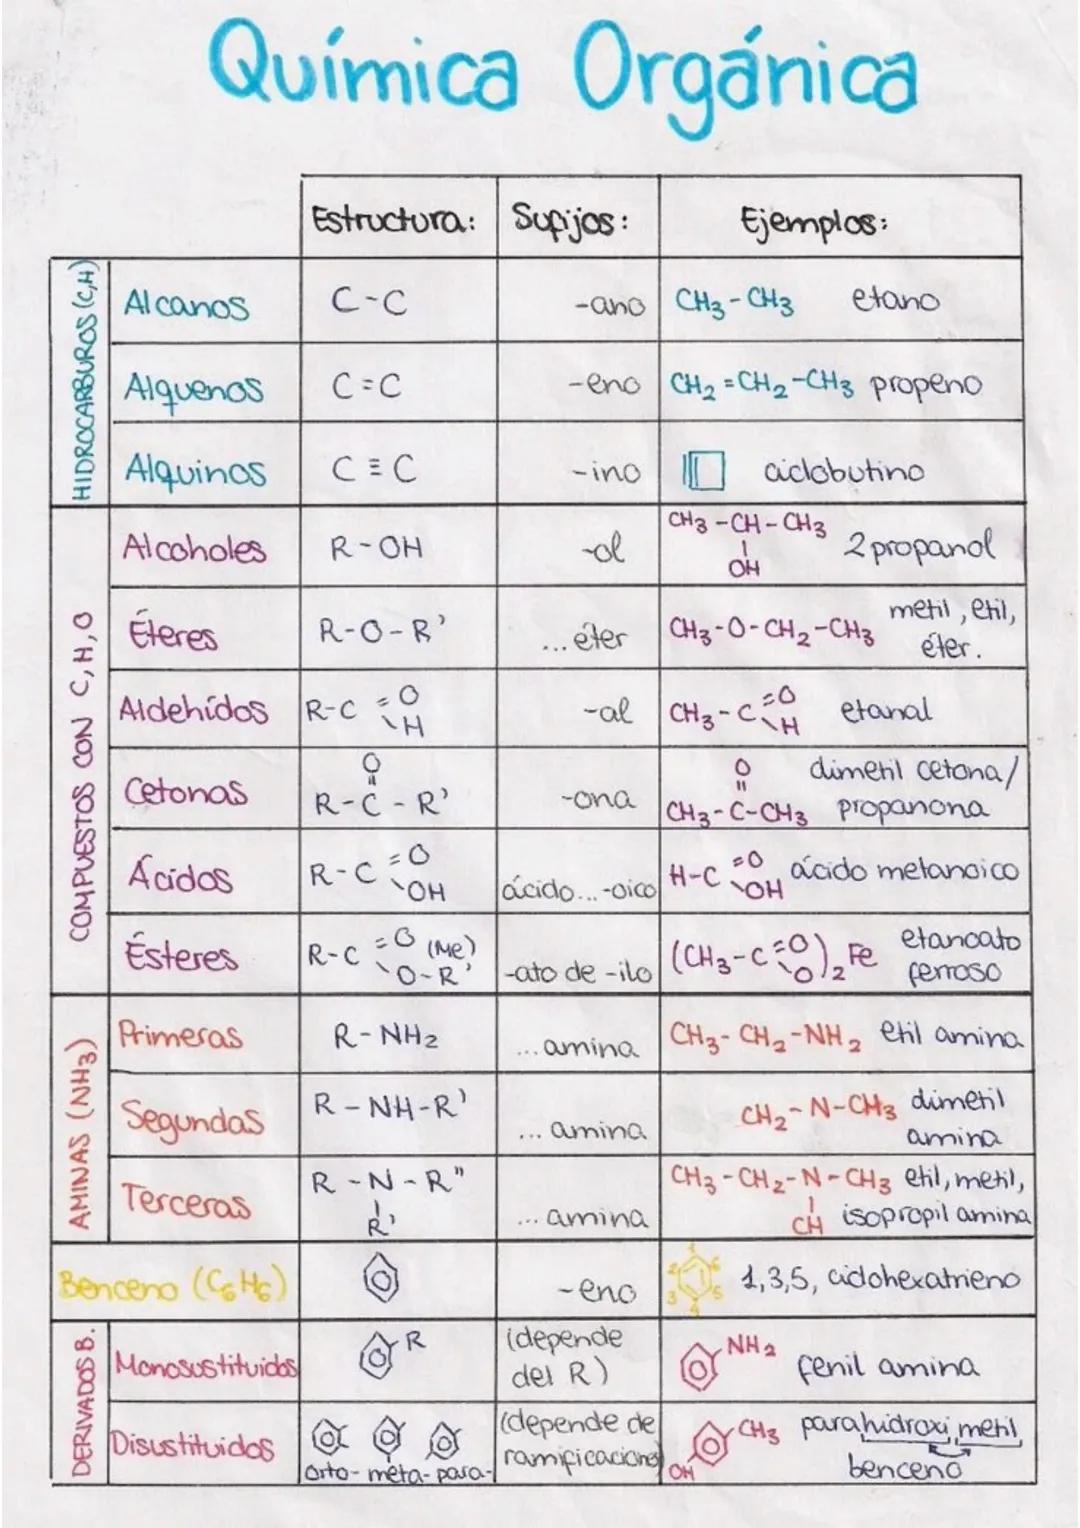 Química Orgánica
Estructura: Sufijos: Ejemplos:
HIDROCARBUROS (C,H)
Alcanos C-C -ano CH3-CH3 etano
Alquenos C=C -eno CH2=CH2-CH3 propeno
Alquinos C≡C -ino ciclobutino
COMPUESTOS CON C, H, O
Alcoholes R-OH -ol CH3-CH-CH3 2 propanol
OH
Éteres R-O-R' ...éter CH3-O-CH2-CH3 metil, etil,
éter.
Aldehídos R-C=O -al CH3-C=O etanal
H H
O O dimetil cetona/
Cetonas R-C-R' -ona CH3-C-CH3 propanona
Ácidos R-C=O ácido...-oico H-C=O ácido metanoico
OH OH
Ésteres R-C=O (Me) -ato de -ilo (CH3-C=O)2 Fe etanoato
O-R' O ferroso
AMINAS (NH3)
Primeras R-NH2 ...amina CH3-CH2-NH2 etil amina
Segundas R-NH-R' ...amina CH2-N-CH3 dimetil
amina
Terceras R-N-R" ...amina CH3-CH2-N-CH3 etil, metil,
R' CH isopropil amina
Benceno (C6H6) -eno 1 2 3 4 5 6 1,3,5, ciclohexatrieno
DERIVADOS B.
Monosustituidos R (depende NH2 fenil amina
del R)
Disustituidos (depende de CH3 parahidroxi, metil
orto- meta- para- ramificaciones) OH benceno